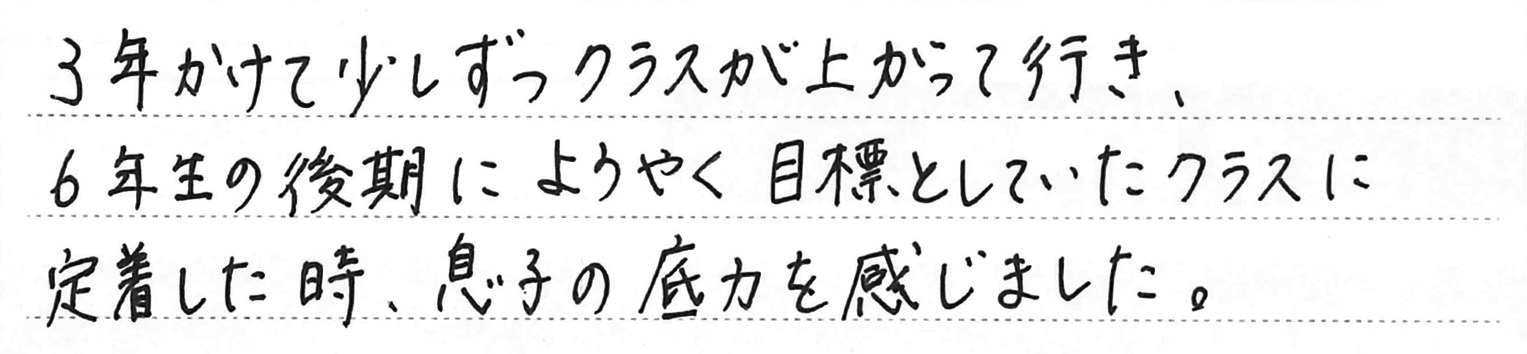 3年かけて少しずつクラスが上がって行き、
6年生の後期にようやく目標としていたクラスに
定着した時、息子の底力を感じました。